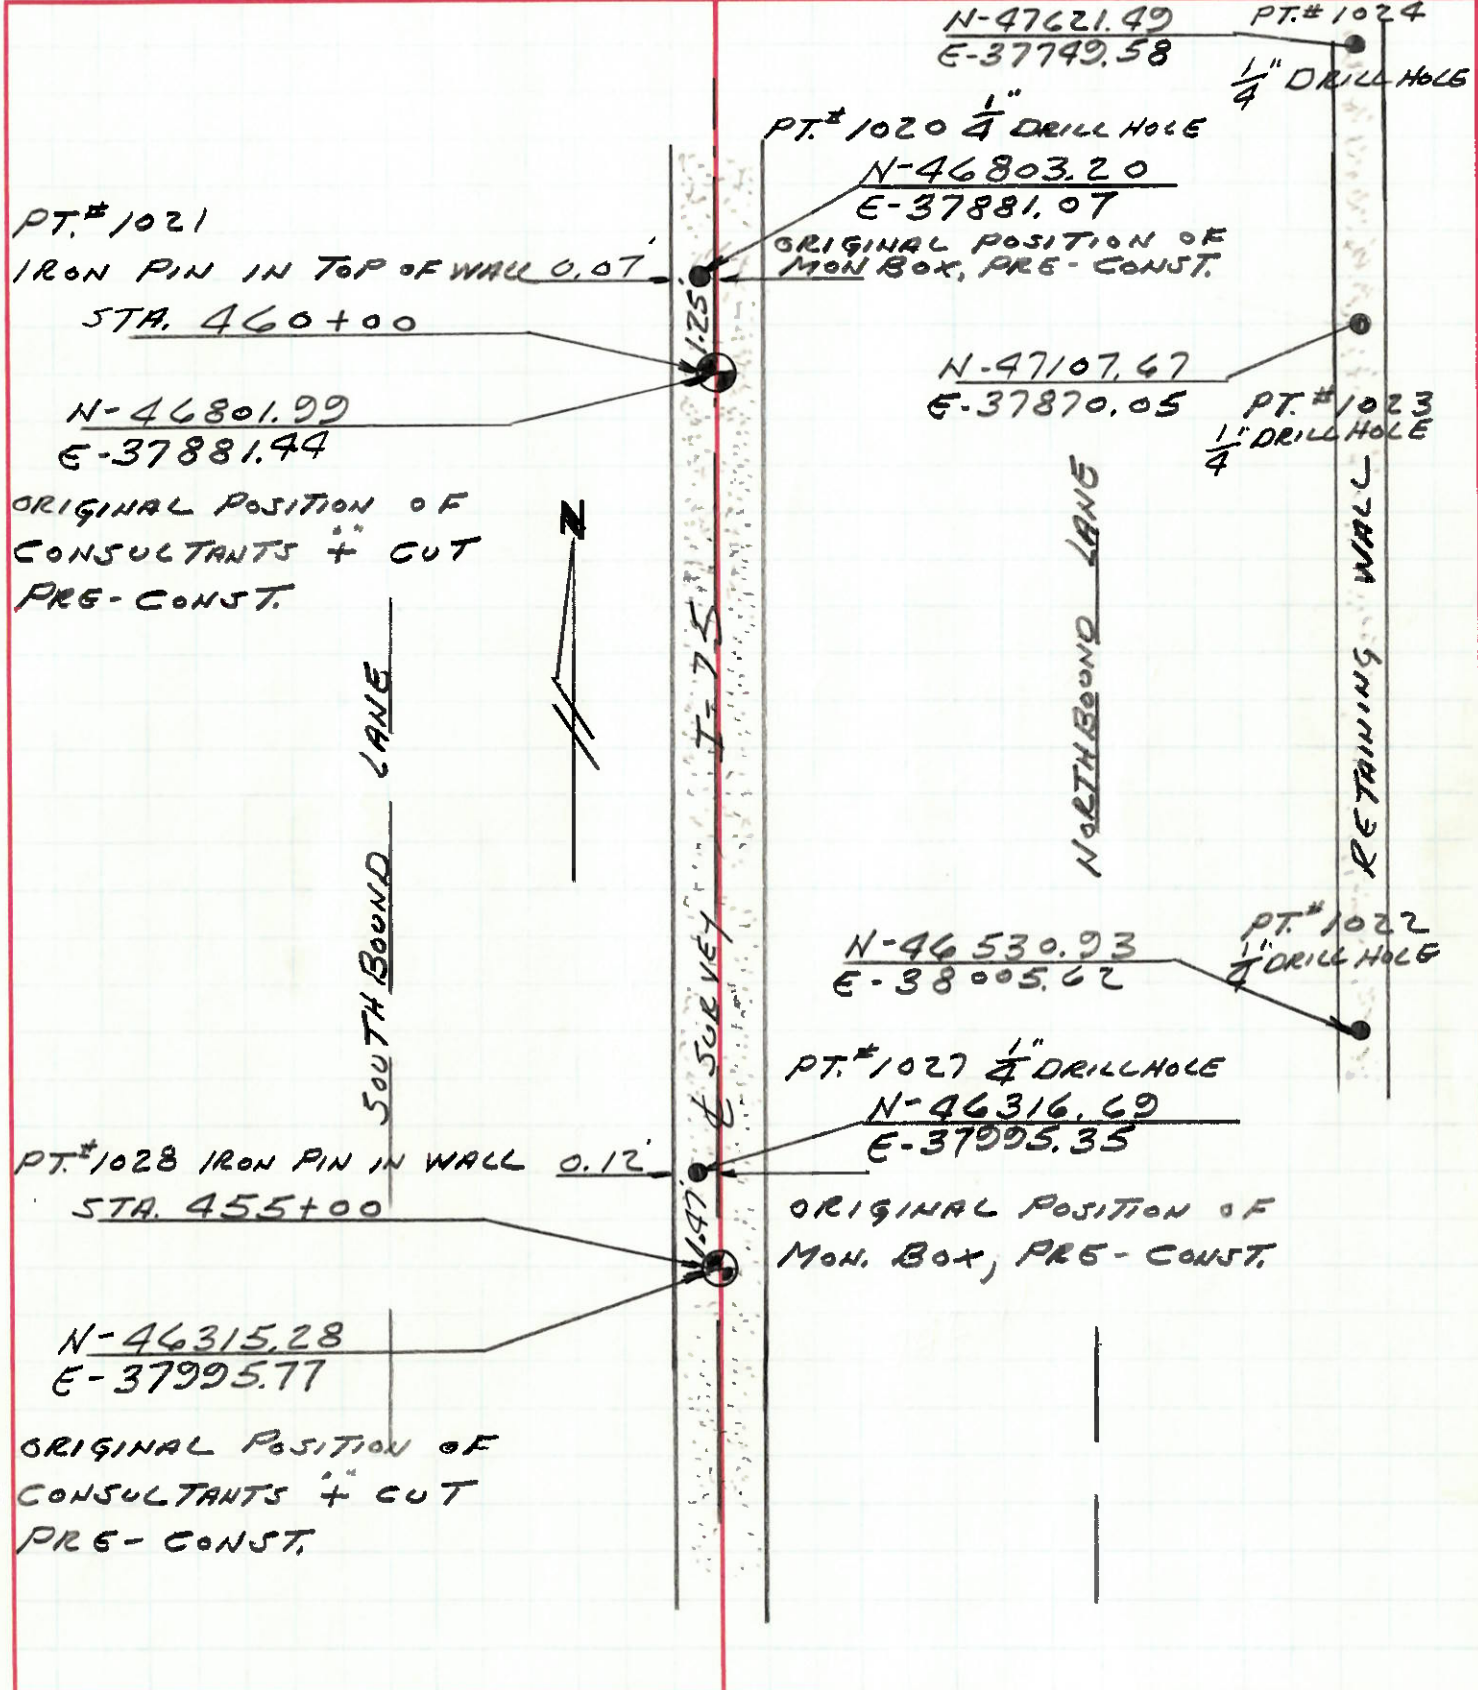 N-47621.49
E-37749.58
PT.# 1024
1/4" DRILL HOLE
PT.# 1020 1/4" DRILL HOLE
N-46803.20
E-37881.07
ORIGINAL POSITION OF
MON BOX, PRE-CONST.
PT.# 1021
IRON PIN IN TOP OF WALL 0.07'
STA. 460+00
1.25'
N-46801.99
E-37881.44
ORIGINAL POSITION OF
CONSULTANTS "+" CUT
PRE-CONST.
N-47107.67
E-37870.05
PT.# 1023
1/4" DRILL HOLE
N
SOUTHBOUND LANE
℄ SURVEY I-75
NORTHBOUND LANE
RETAINING WALL
N-46530.93
E-38005.62
PT.# 1022
1/4" DRILL HOLE
PT.# 1027 1/4" DRILLHOLE
N-46316.69
E-37995.35
ORIGINAL POSITION OF
MON. BOX, PRE-CONST.
PT.# 1028 IRON PIN IN WALL 0.12'
STA. 455+00
1.47'
N-46315.28
E-37995.77
ORIGINAL POSITION OF
CONSULTANTS "+" CUT
PRE-CONST.